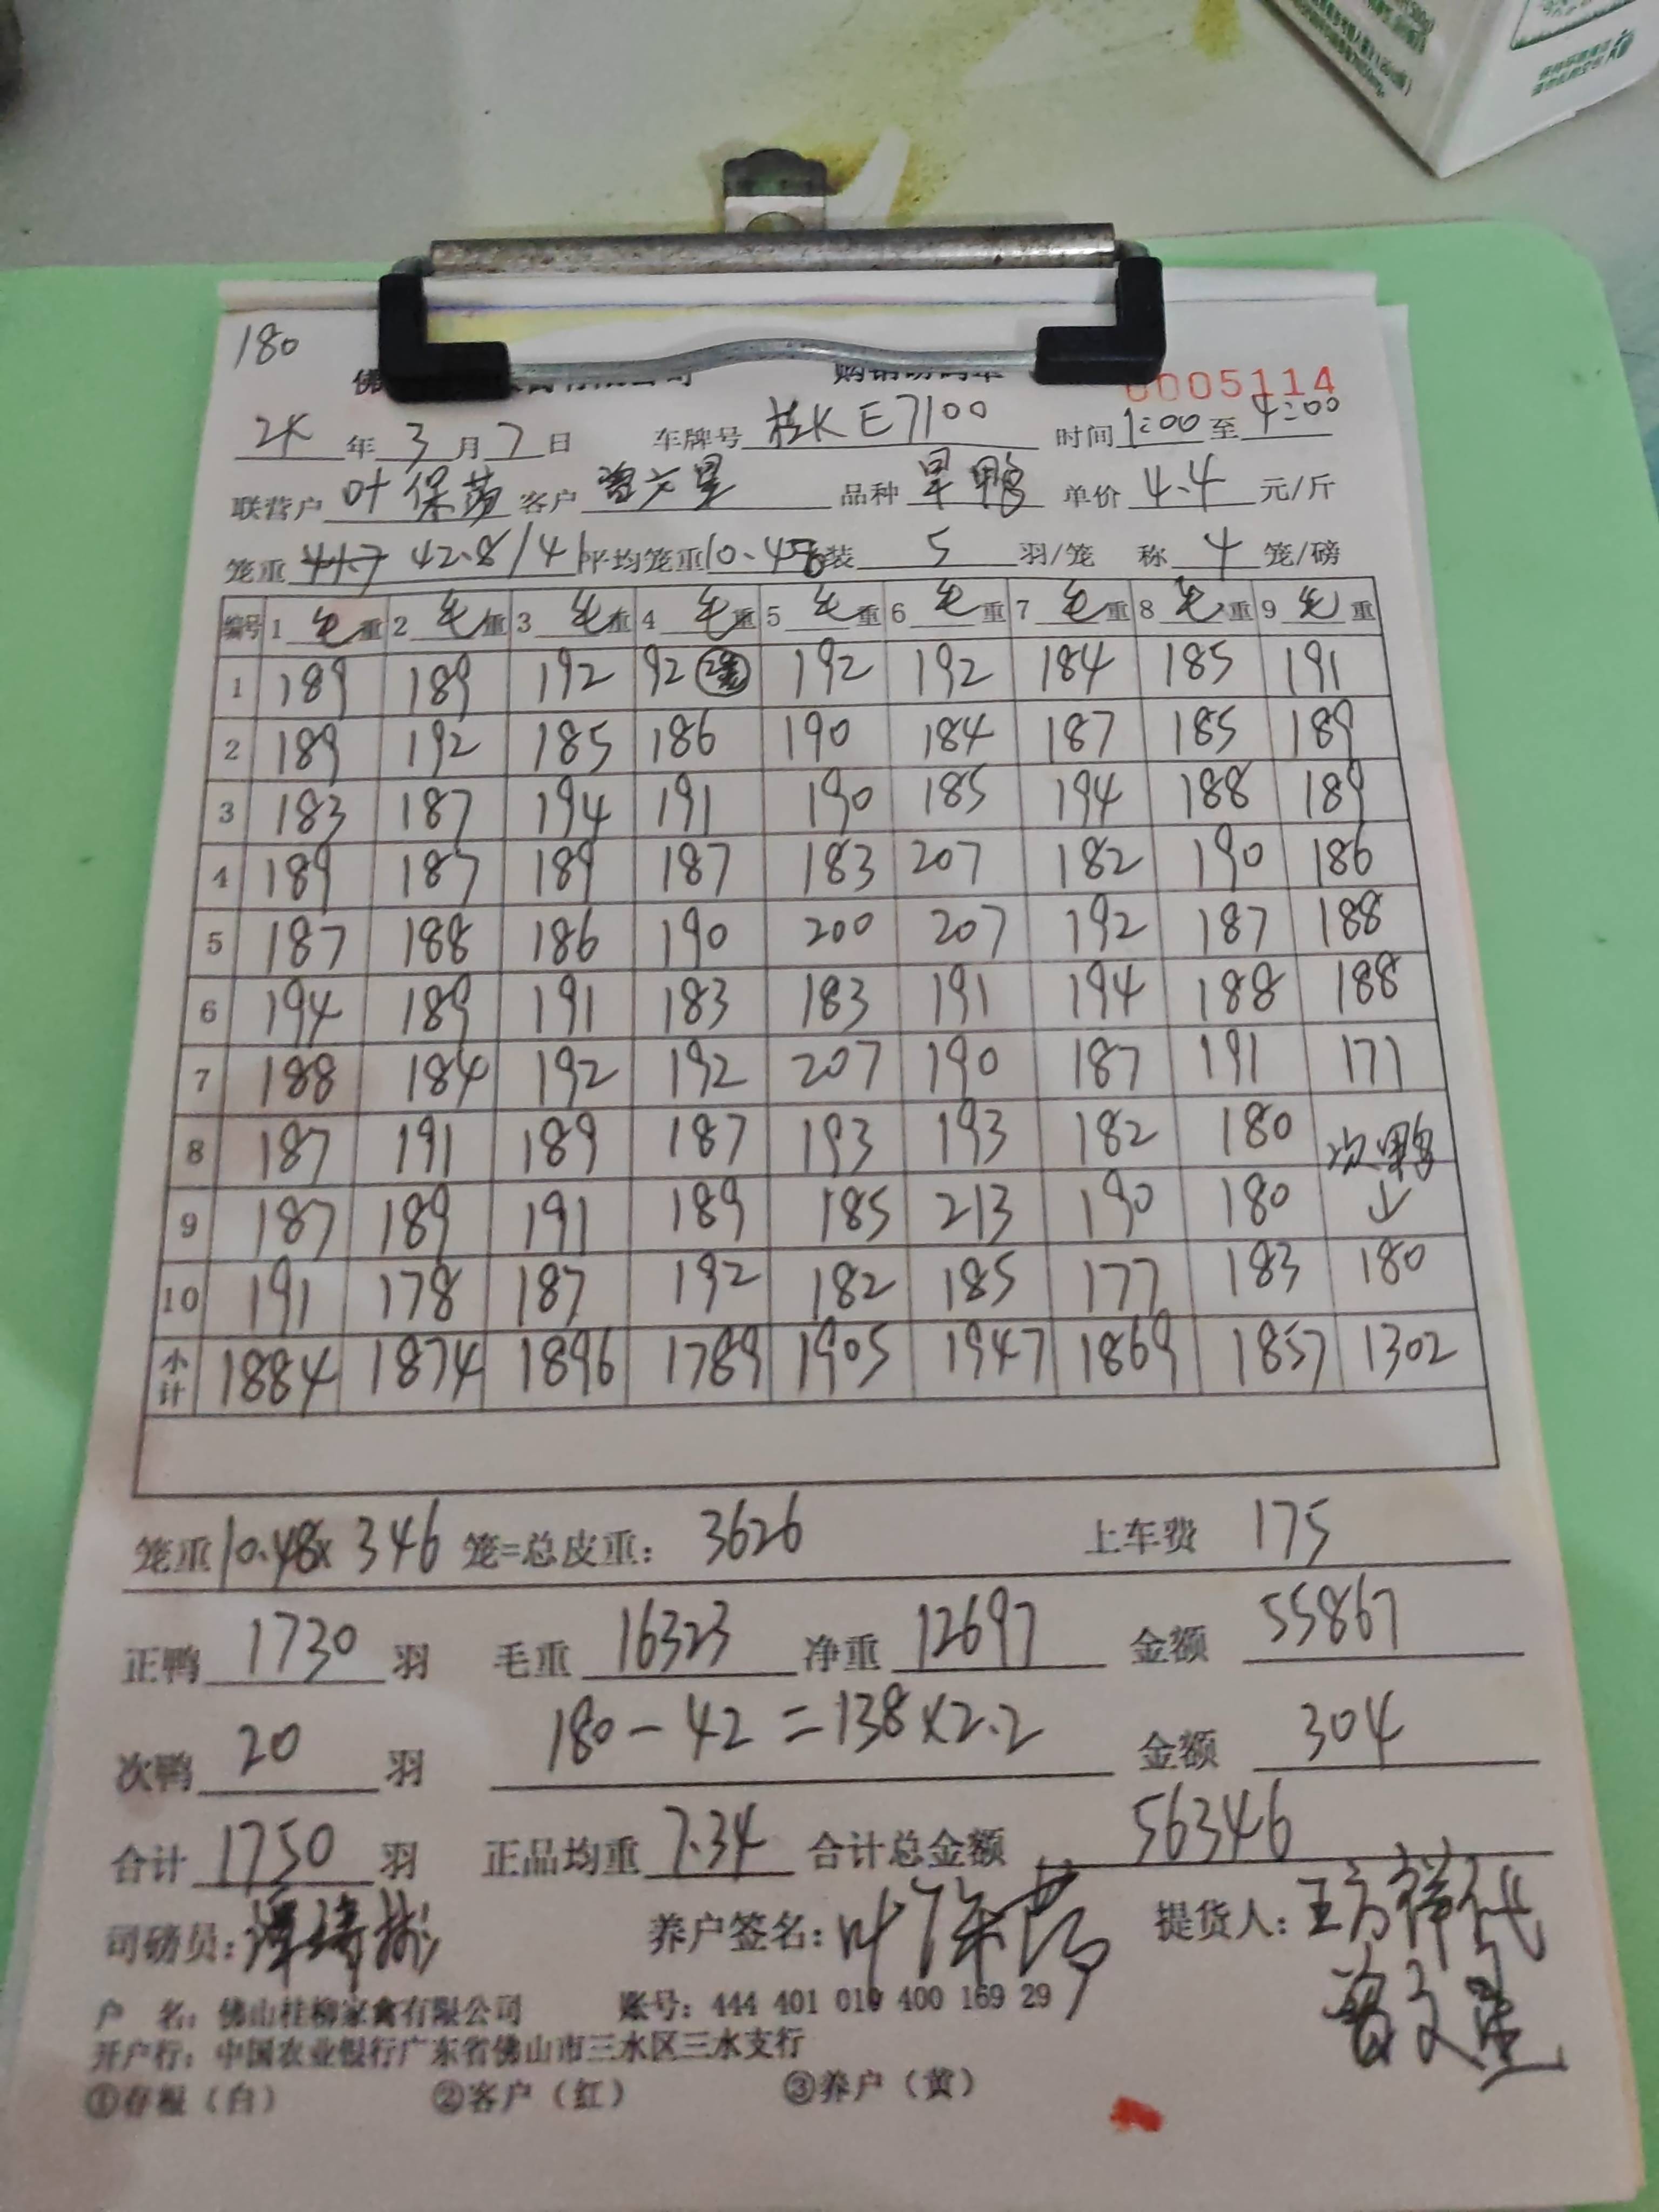 180
0005114
24年3月7日 车牌号 桂KE7100 时间1:00至4:00
联营户 叶保 客户 品种 旱鸭 单价 4.4 元/斤
笼重 42.8/4 平均笼重10.48 装 5 羽/笼 称 4 笼/磅
编号 1 毛重 2 毛重 3 毛重 4 毛重 5 毛重 6 毛重 7 毛重 8 毛重 9 毛重
1 189 189 192 92 192 192 184 185 191
2 189 192 185 186 190 184 187 185 189
3 183 187 194 191 190 185 194 188 189
4 189 187 189 187 183 207 182 190 186
5 187 188 186 190 200 207 192 187 188
6 194 189 191 183 183 191 194 188 188
7 188 184 192 192 207 190 187 191 171
8 187 191 189 187 193 193 182 180 次鸭
9 187 189 191 189 185 213 190 180 ↓
10 191 178 187 192 182 185 177 183 180
小计 1884 1874 1896 1789 1905 1947 1869 1857 1302
笼重10.48x 346 笼=总皮重: 3626 上车费 175
正鸭 1730 羽 毛重 16323 净重 12697 金额 55867
次鸭 20 羽 180-42=138×2.2 金额 304
合计 1750 羽 正品均重 7.34 合计总金额 56346
司磅员: 养户签名: 叶保 提货人: 王 祥代
文星
户 名: 佛山桂柳家禽有限公司 账号: 444 401 010 400 169 29
开户行: 中国农业银行广东省佛山市三水区三水支行
①存根（白） ②客户（红） ③养户（黄）